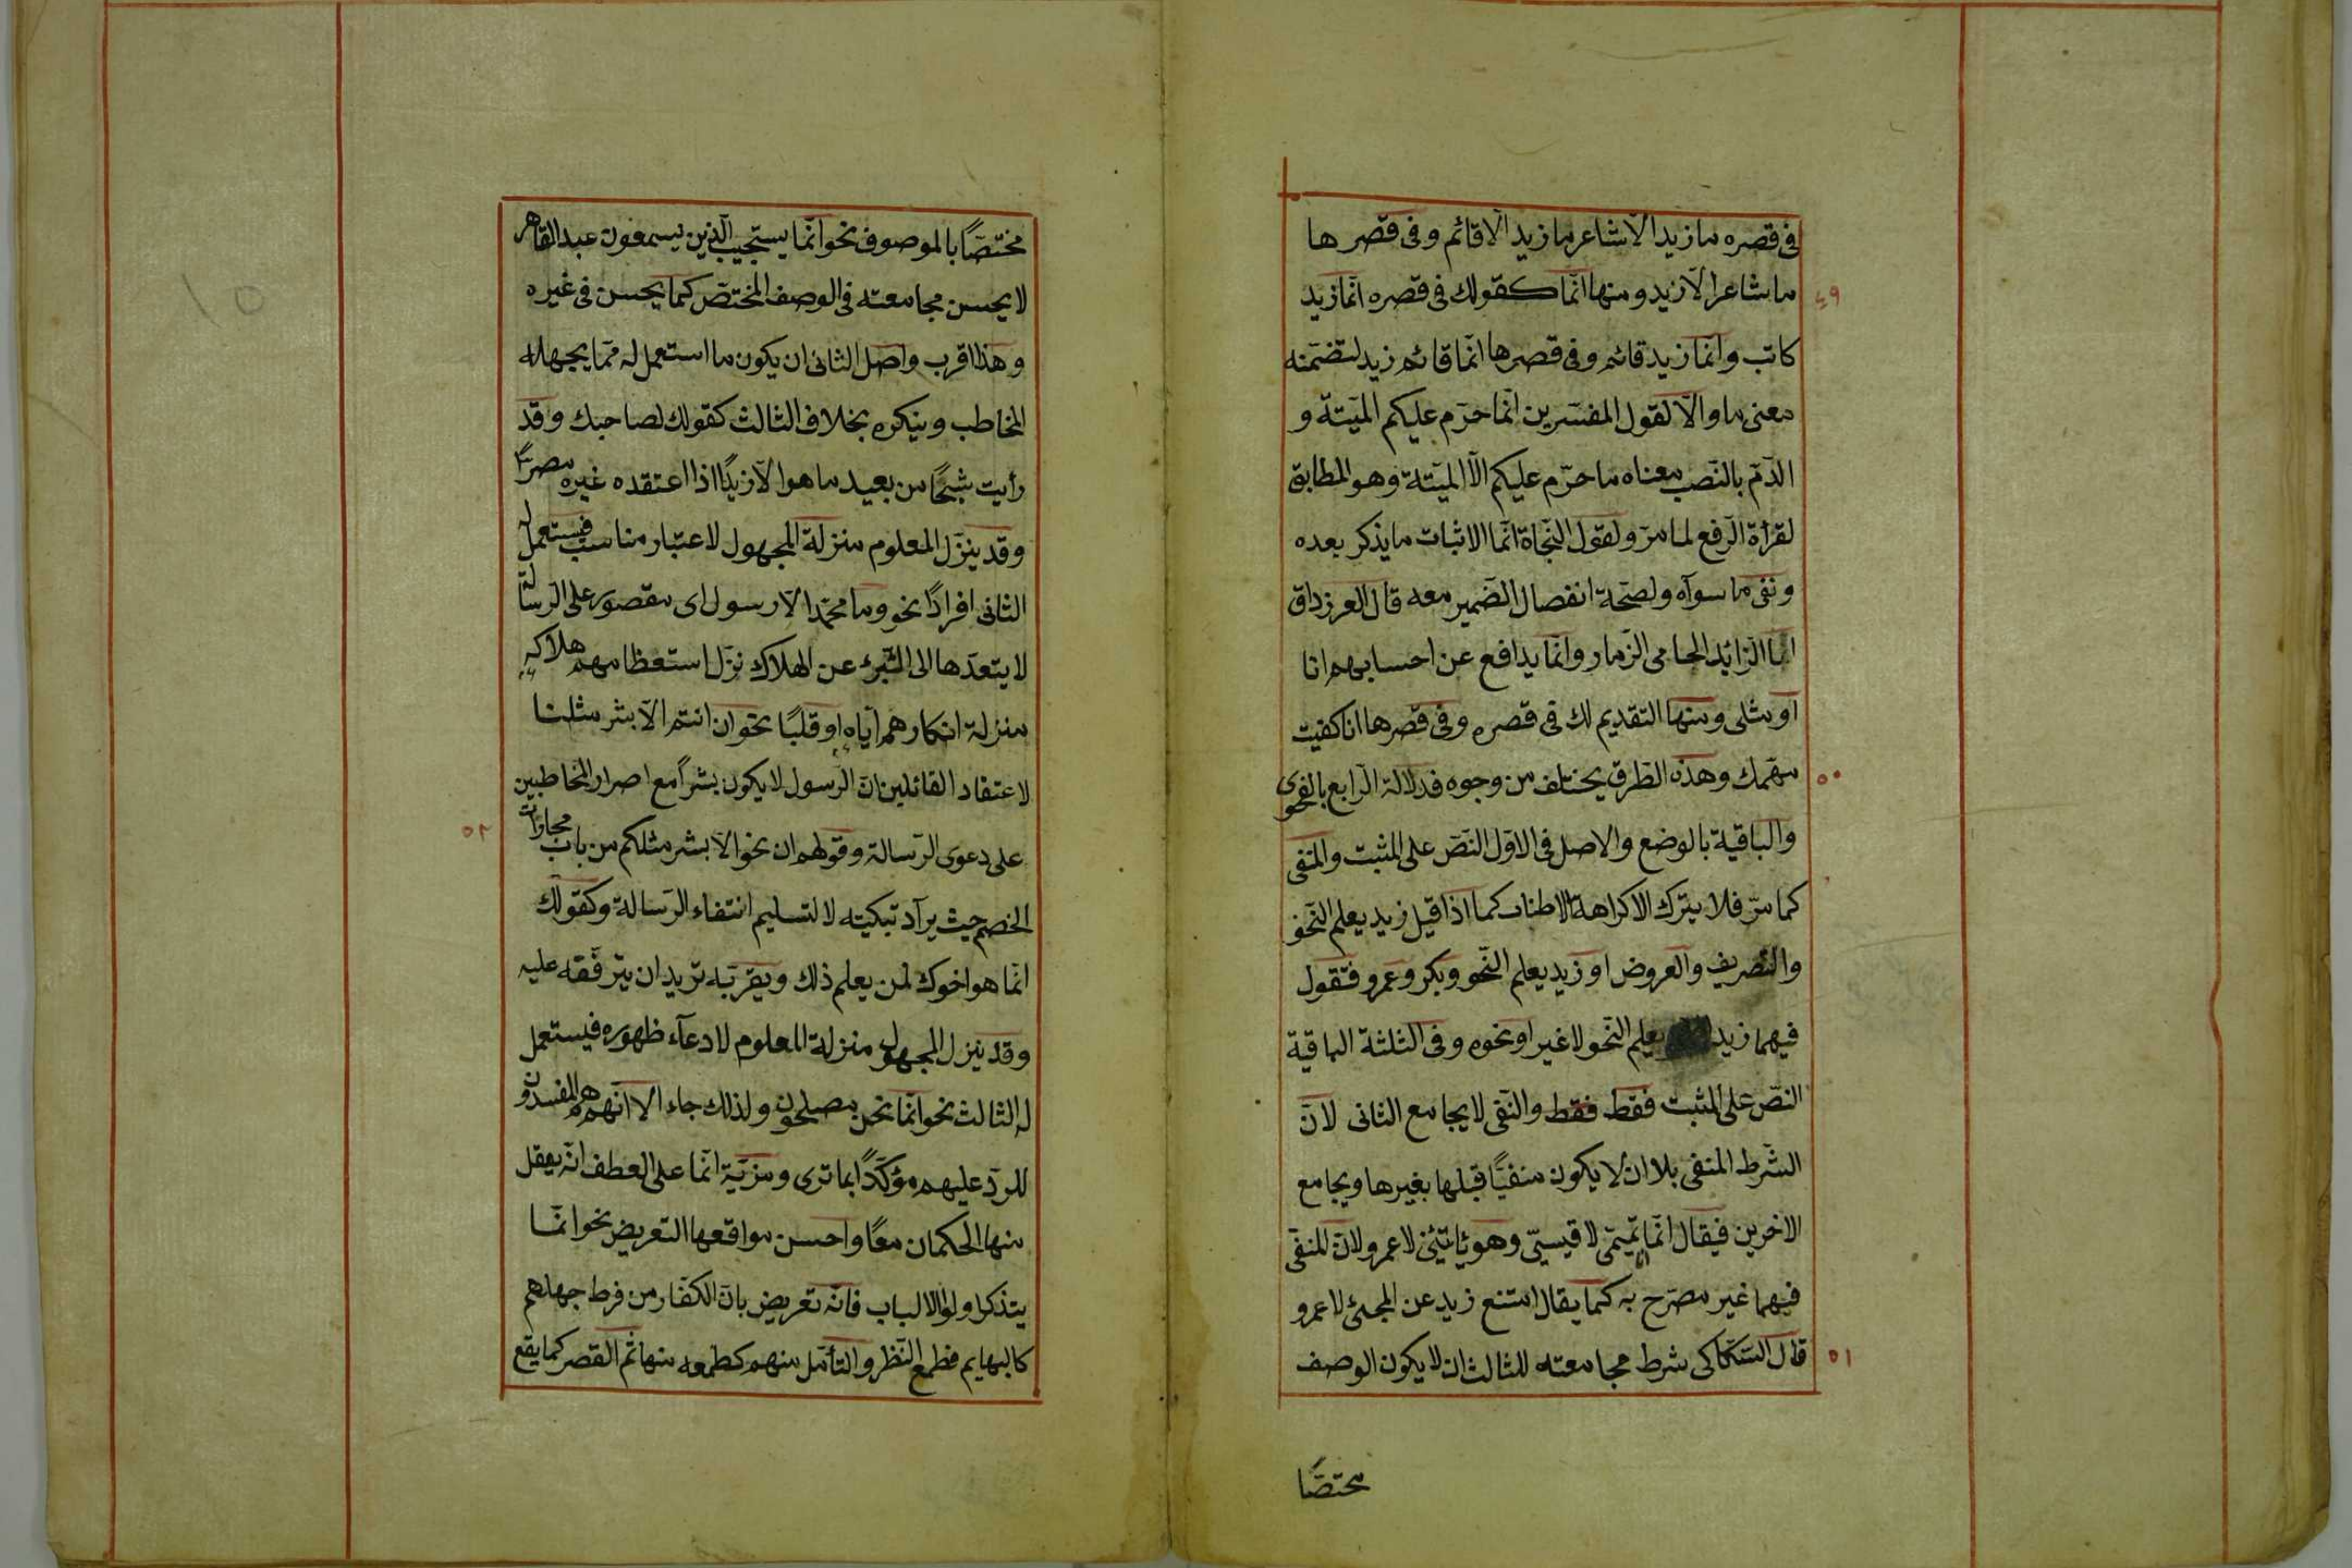 فى قصره ما زيد الّا شاعر ما زيد الّا قائم وفى قصرها
ما شاعر الّا زيد ومنها انّما كقولك فى قصره انّما زيد
٤٩
كاتب وانّما زيد قائم وفى قصرها انّما قائم زيد لتضمّنه
معنى ما والّا لقول المفسّرين انّما حرّم عليكم الميّتة و
الدّم بالنّصب معناه ما حرّم عليكم الّا الميّتة وهو المطابق
لقرأة الرّفع لما مرّ ولقول النّحاة انّما لاثبات ما يذكر بعده
ونفى ما سوآه ولصحّة انفصال الضّمير معه قال الفرزداق
انا الزّائد الحامى الزمار وانّما يدافع عن احسابهم انا
او مثلى ومنها التقديم لك فى قصره وفى قصرها انا كفيت
مهمّك وهذه الطّرق يختلف من وجوه فدلالة الرّابع بالفحوى
٥٠
والباقية بالوضع والاصل فى الاوّل النّصّ على المثبت والمنفى
كما مرّ فلا يترك الا كراهة الاطناب كما اذا قيل زيد يعلم النّحو
والتّصريف والعروض او زيد يعلم النّحو وبكر وعمرو فتقول
فيهما زيد يعلم النّحو لا غير او نحوه وفى الثلثة الباقية
النصّ على المثبت فقط فقط والنّفى لا يجامع الثانى لانّ
الشّرط المنفى بلا ان لا يكون منفيّا قبلها بغيرها ويجامع
الاخرين فيقال انّما انا تميمّى لا قيسىّ وهو يأتينى لا عمرو لانّ المنفىّ
فيهما غير مصرّح به كما يقال امتنع زيد عن المجئ لا عمرو
قال السّكّاكى شرط مجامعته للثالث ان لا يكون الوصف
٥١
مختصّا
مختصّاً بالموصوف نحو انّما يستجيب الّذين يسمعون عبد القاهر
لا يحسن مجامعته فى الوصف المختصّ كما يحسن فى غيره
وهذا اقرب واصل الثانى ان يكون ما استعمل له ممّا يجهله
المخاطب وينكره بخلاف الثالث كقولك لصاحبك وقد
رأيت شبحًا من بعيد ما هو الّا زيدًا اذا اعتقده غيره مصرًّا
وقد ينزّل المعلوم منزلة المجهول لاعتبار مناسب فيستعمل له
الثانى افرادًا نحو وما محمّد الّا رسول اى مقصور على الرّسالة
لا يتعدّها الى التّبرئ عن الهلاك نزّل استعظامهم هلاكه
منزلة انكارهم ايّاه او قلبًا نحو ان انتم الّا بشر مثلنا
لاعتقاد القائلين انّ الرّسول لا يكون بشراً مع اصرار المخاطبين
على دعوى الرّسالة وقولهم ان نحو الّا بشر مثلكم من باب مجاراة
٥٢
الخصم حيث يرآد تبكيته لا لتسليم انتفاء الرّسالة وكقولك
انّما هو اخوك لمن يعلم ذلك ويقرّ به تريد ان يترفّقه عليه
وقد ينزل المجهول منزلة المعلوم لادعآء ظهوره فيستعمل
له الثالث نحو انّما نحن مصلحون ولذلك جاء الا انّهم هم المفسدون
للرّدّ عليهم مؤكّدًا بما ترى ومزيّة انّما على العطف انّه يعقل
منها الحكمان معًا واحسن مواقعها التعريض نحو انّما
يتذكر اولوا الالباب فانّه تعريض بانّ الكفّار من فرط جهلهم
كالبهايم فطمع النّظر والتأمّل منهم كطمعه منها ثم القصر كما يقع
١٥